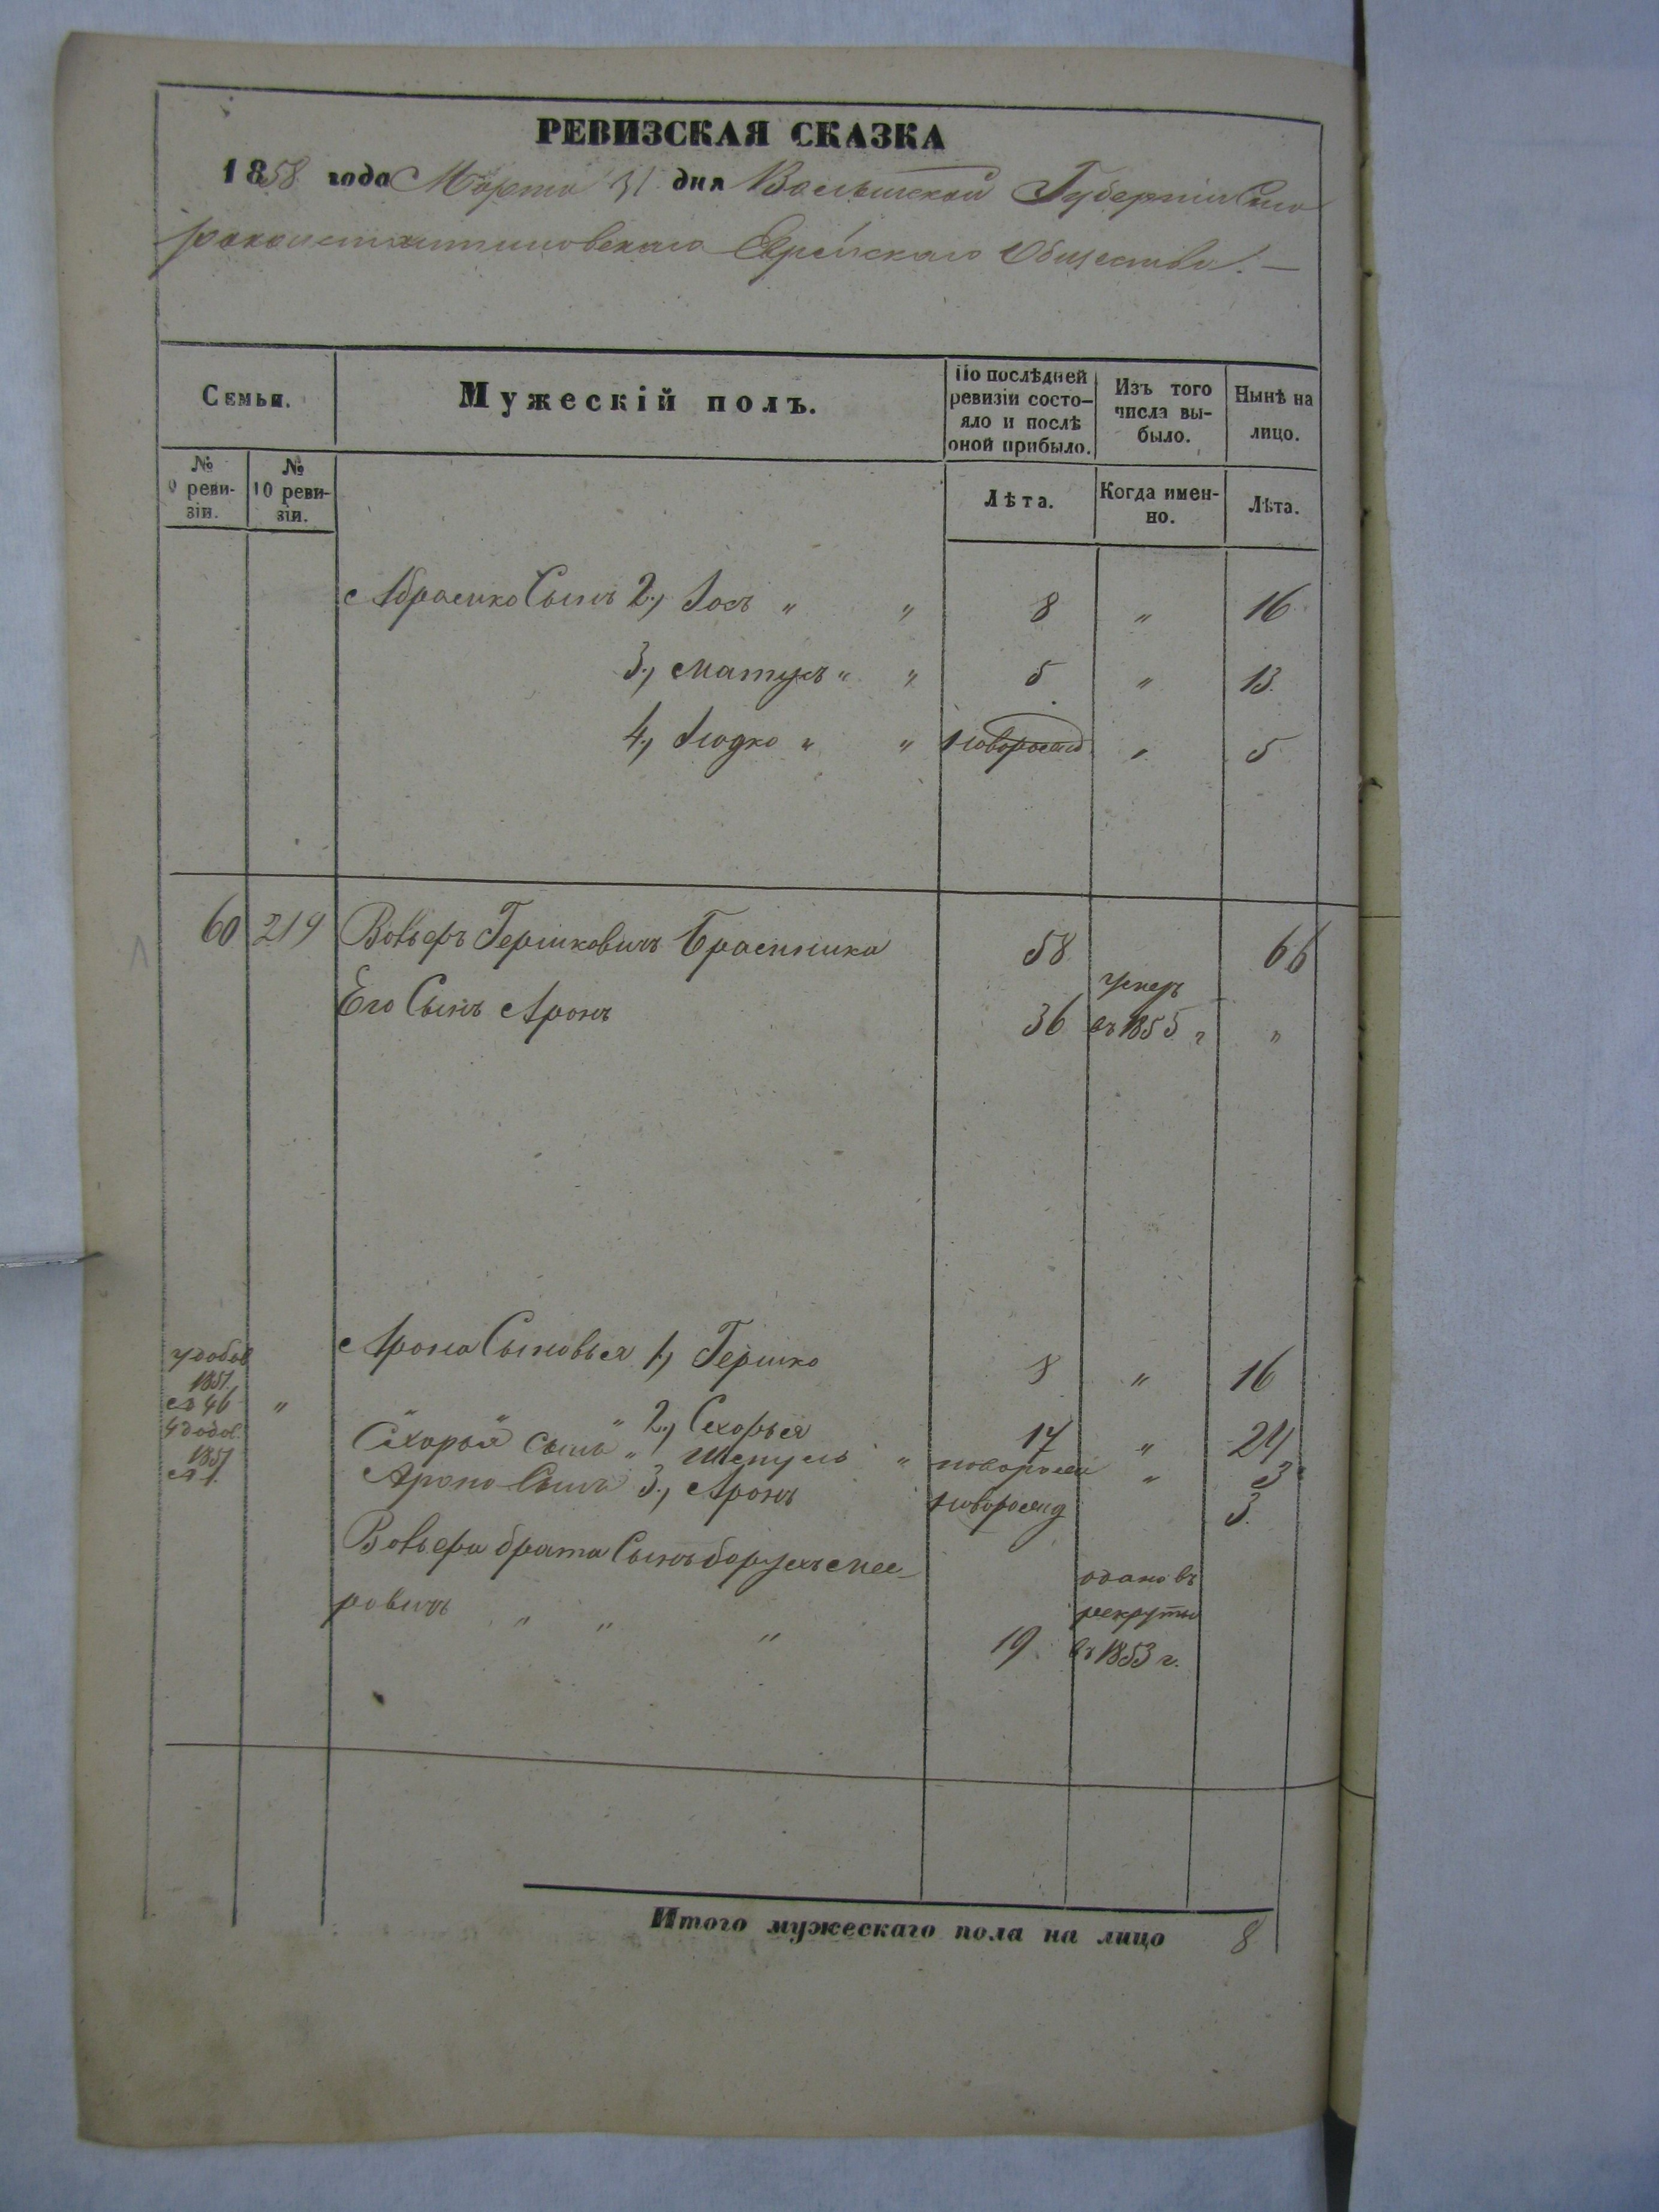 РЕВИЗСКАЯ СКАЗКА
1858 года Марта 31 дня Волынской Губернiи Ста
роконстантиновскаго Еврейскаго Общества. —
Семьи.
Мужескiй полъ.
По послѣдней ревизiи состо-
яло и послѣ
оной прибыло.
Изъ того
числа вы-
было.
Нынѣ на
лицо.
№
9 реви-
зiи.
№
10 реви-
зiи.
Лѣта.
Когда имен-
но.
Лѣта.
Абрамко Сынъ 2., Іосъ " " 8 " 16
3., " " 5 " 13
4., " " новорожд " 5
60 219 Вольфъ Гершковичъ 58 66
Его Сынъ Аронъ 36 умеръ
въ 1855 г "
Арона Сыновья 1., Гершко 8 " 16
1851.
46 "
" " " 2., Сехорья 17 " 24
Сехорья сынъ " " новорожд " 3
1851
Арона Сынъ 3., Аронъ новорожд 3.
Вольфа брата Сынъ борухъ Мее-
ровичъ " " " 19. въ
рекруты
въ 1853 г.
Итого мужескаго пола на лицо 8